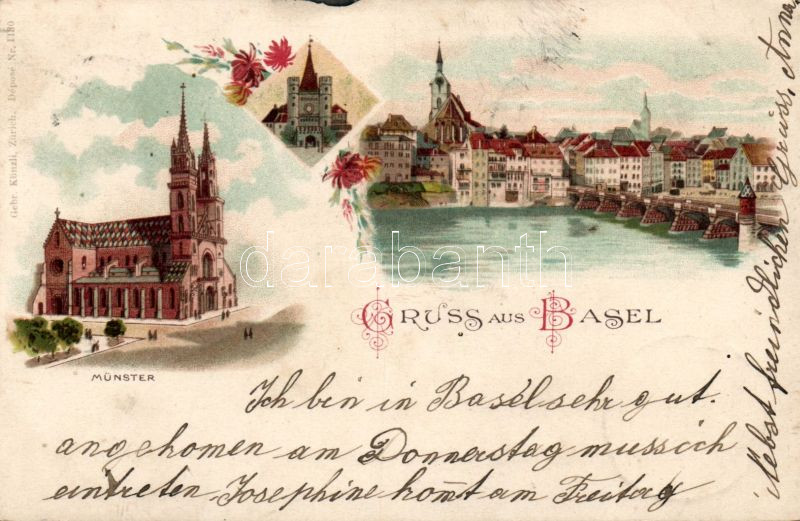 Gebr. Künzli, Zürich. Dépose Nr. 1180
MÜNSTER
GRUSS AUS BASEL
darabanth
Ich bin in Basel sehr gut.
angekomen am Donnerstag muss ich
eintreten Josephine kom̄t am Freitag
Nebst freindlichen Gruss, Anna